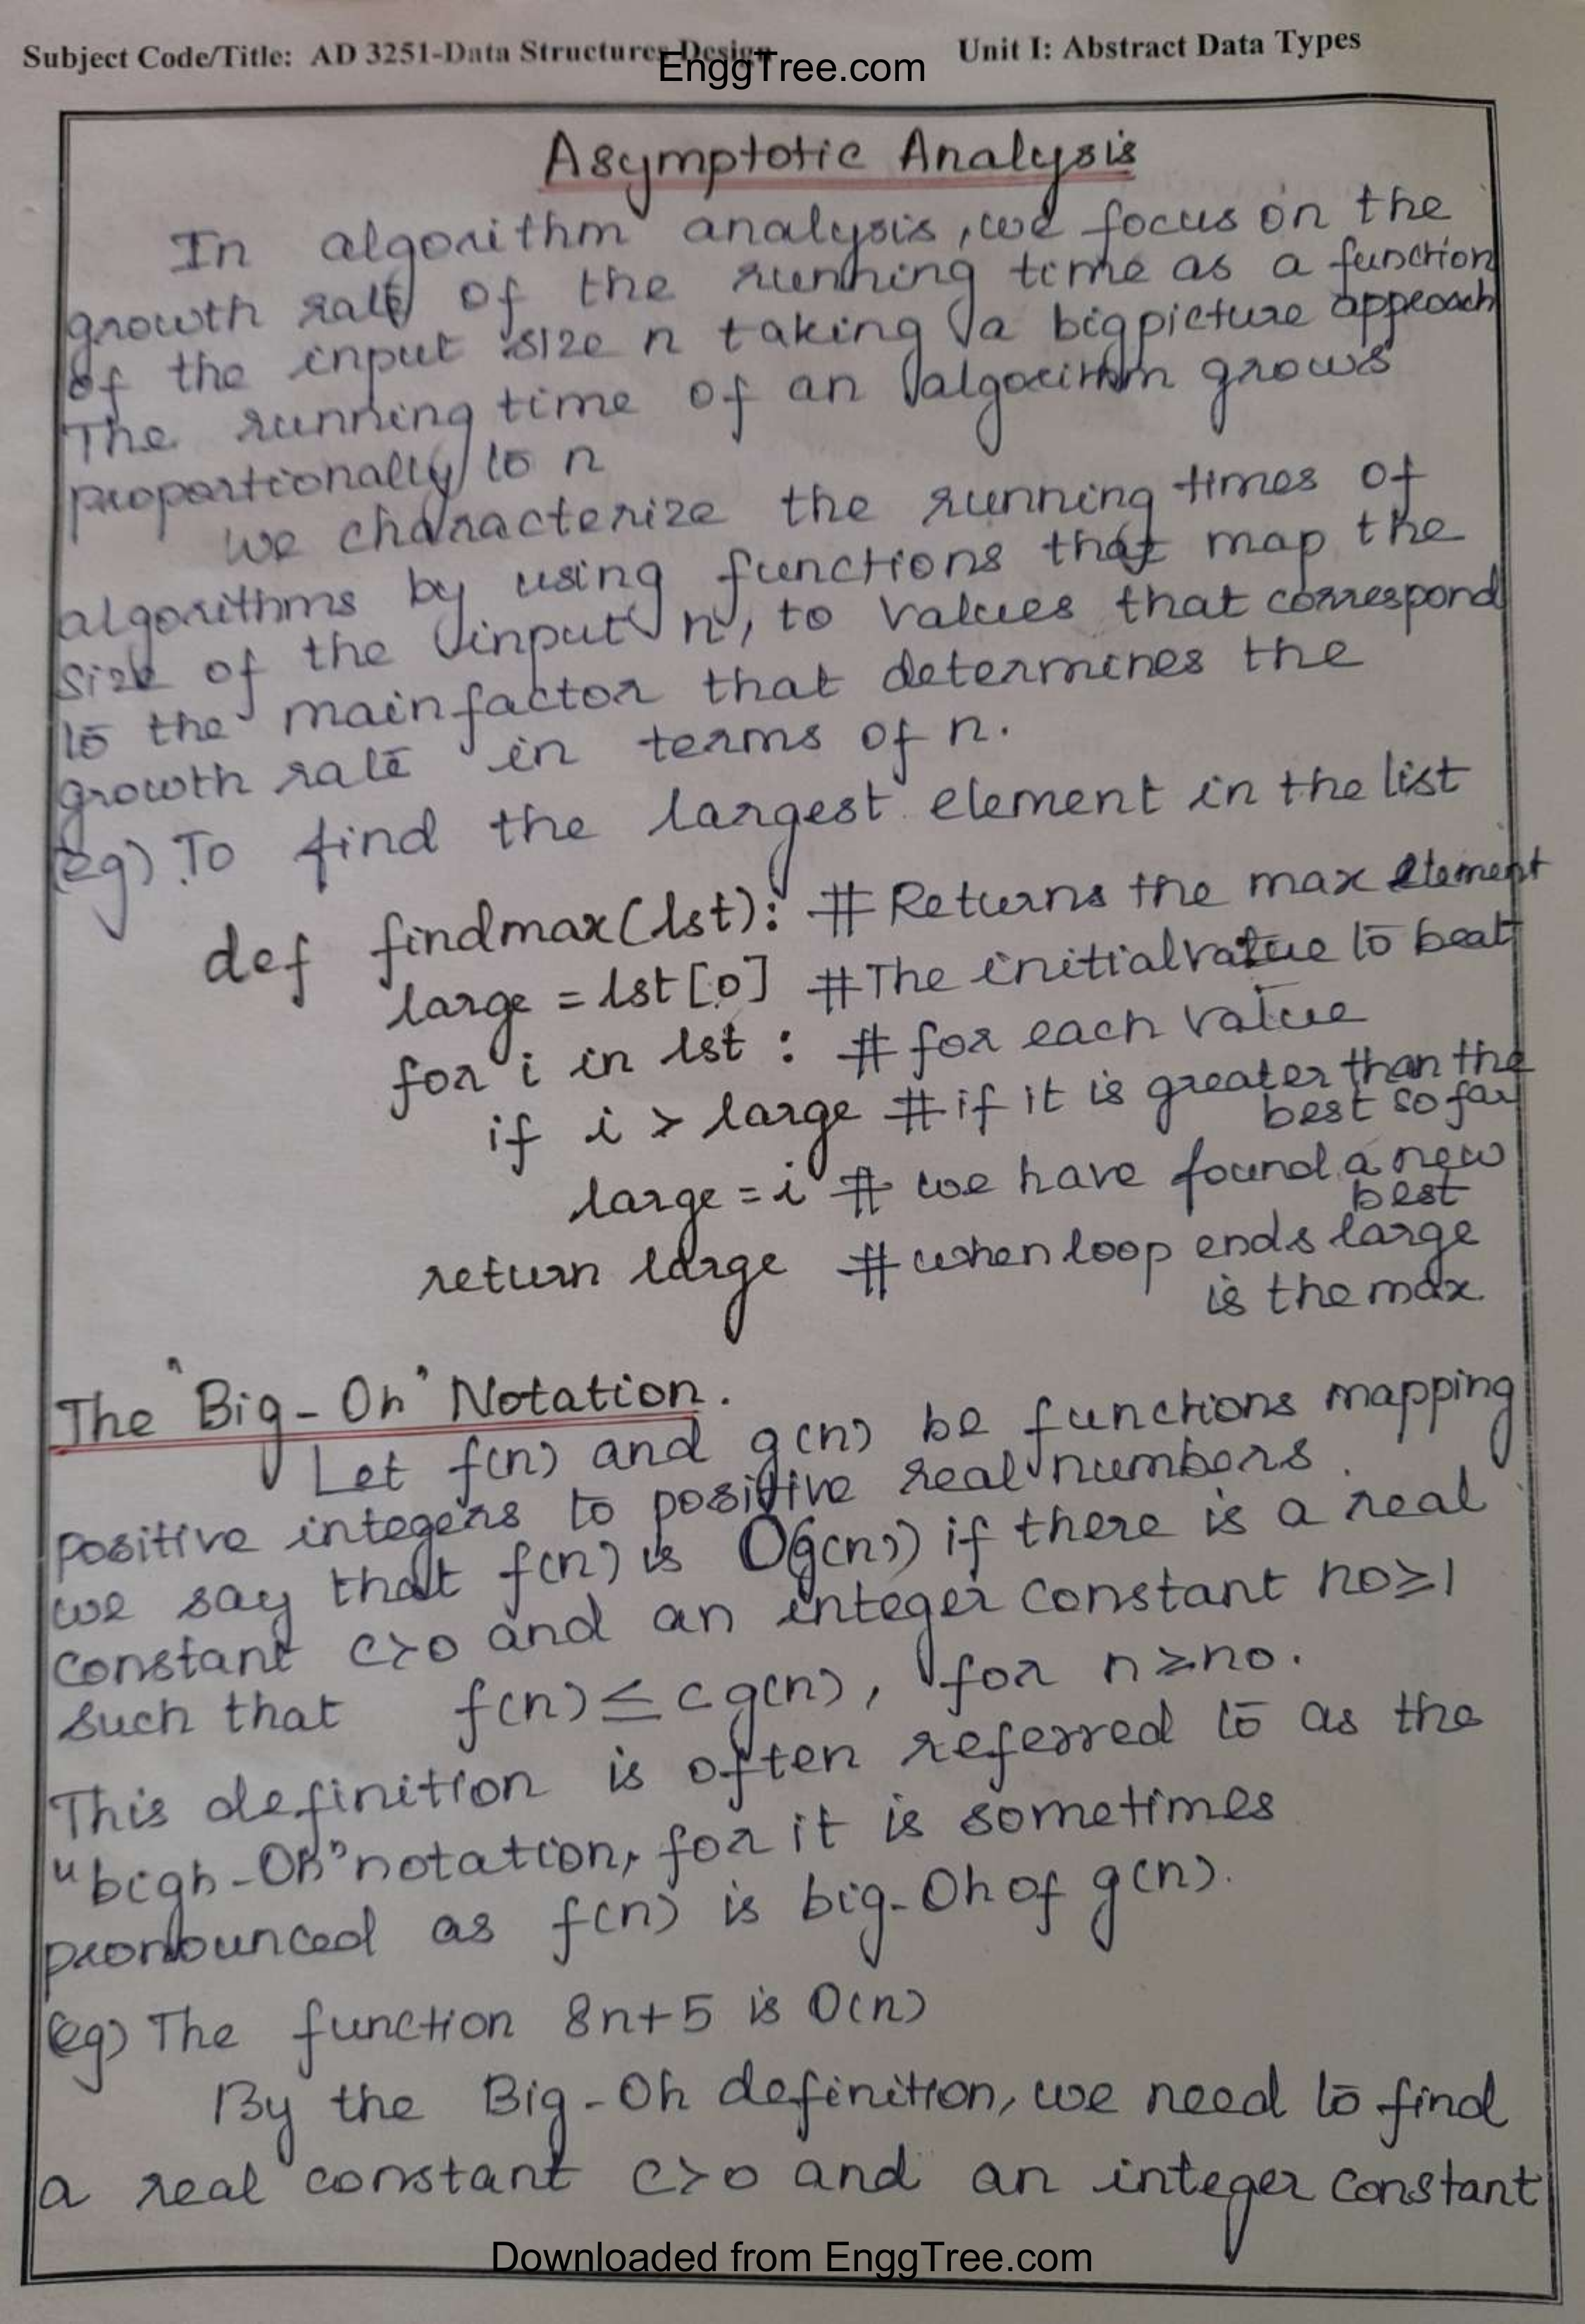 Subject Code/Title: AD 3251-Data Structures Design Unit I: Abstract Data Types
EnggTree.com
Asymptotic Analysis
In algorithm analysis, we focus on the
growth rate of the running time as a function
of the input size n taking a bigpicture approach
The running time of an algorithm grows
proportionally to n
we characterize the running times of
algorithms by using functions that map the
size of the input n, to values that correspond
to the main factor that determines the
growth rate in terms of n.
(eg) To find the largest element in the list
def findmax(lst): # Returns the max element
large = lst[0] # The initial value to beat
for i in lst : # for each value
if i > large # if it is greater than the
best so far
large = i # we have found a new
best
return large # when loop ends large
is the max.
The "Big-Oh" Notation.
Let f(n) and g(n) be functions mapping
positive integers to positive real numbers.
we say that f(n) is O(g(n)) if there is a real
constant c>0 and an integer constant n0≥1
such that f(n) ≤ c g(n), for n≥n0.
This definition is often referred to as the
"bigh-Oh" notation, for it is sometimes
pronounced as f(n) is big-Oh of g(n).
(eg) The function 8n+5 is O(n)
By the Big-Oh definition, we need to find
a real constant c>0 and an integer constant
Downloaded from EnggTree.com